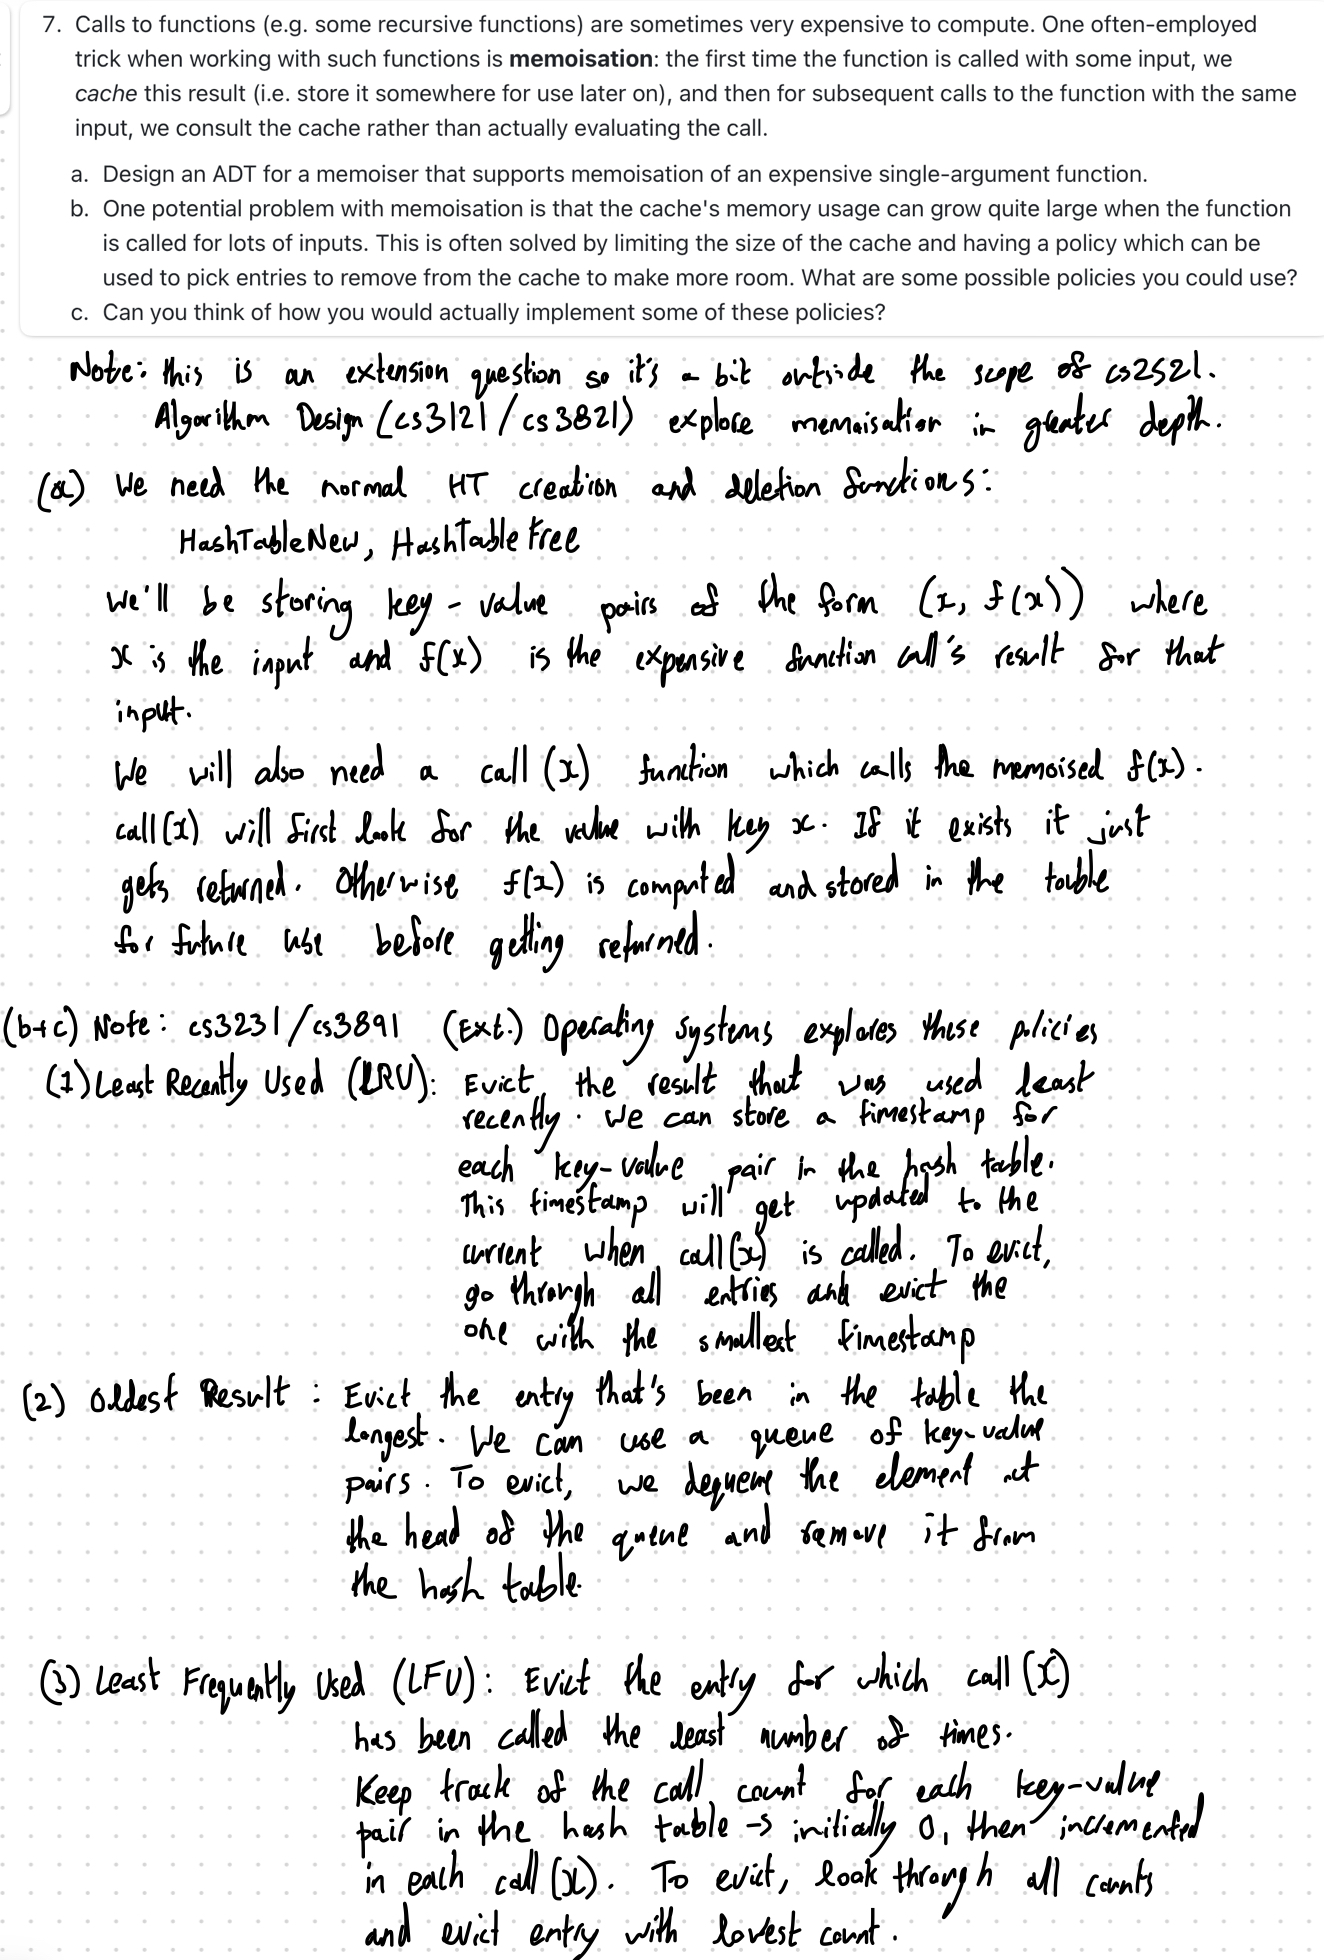 7. Calls to functions (e.g. some recursive functions) are sometimes very expensive to compute. One often-employed
trick when working with such functions is memoisation: the first time the function is called with some input, we
cache this result (i.e. store it somewhere for use later on), and then for subsequent calls to the function with the same
input, we consult the cache rather than actually evaluating the call.
a. Design an ADT for a memoiser that supports memoisation of an expensive single-argument function.
b. One potential problem with memoisation is that the cache's memory usage can grow quite large when the function
is called for lots of inputs. This is often solved by limiting the size of the cache and having a policy which can be
used to pick entries to remove from the cache to make more room. What are some possible policies you could use?
c. Can you think of how you would actually implement some of these policies?
Note: this is an extension question so it's a bit outside the scope of cs2521.
Algorithm Design (cs3121/cs3821) explore memoisation in greater depth.
(a) We need the normal HT creation and deletion functions:
HashTableNew, HashTableFree
We'll be storing key-value pairs of the form (x, f(x)) where
x is the input and f(x) is the expensive function call's result for that
input.
We will also need a call(x) function which calls the memoised f(x).
call(x) will first look for the value with key x. If it exists it just
gets returned. Otherwise f(x) is computed and stored in the table
for future use before getting returned.
(b+c) Note: cs3231/cs3891 (Ext.) Operating Systems explores these policies
(1) Least Recently Used (LRU): Evict the result that was used least
recently. We can store a timestamp for
each key-value pair in the hash table.
This timestamp will get updated to the
current when call(x) is called. To evict,
go through all entries and evict the
one with the smallest timestamp
(2) Oldest Result: Evict the entry that's been in the table the
longest. We can use a queue of key-value
pairs. To evict, we dequeue the element at
the head of the queue and remove it from
the hash table.
(3) Least Frequently Used (LFU): Evict the entry for which call(x)
has been called the least number of times.
Keep track of the call count for each key-value
pair in the hash table → initially 0, then incremented
in each call(x). To evict, look through all counts
and evict entry with lowest count.